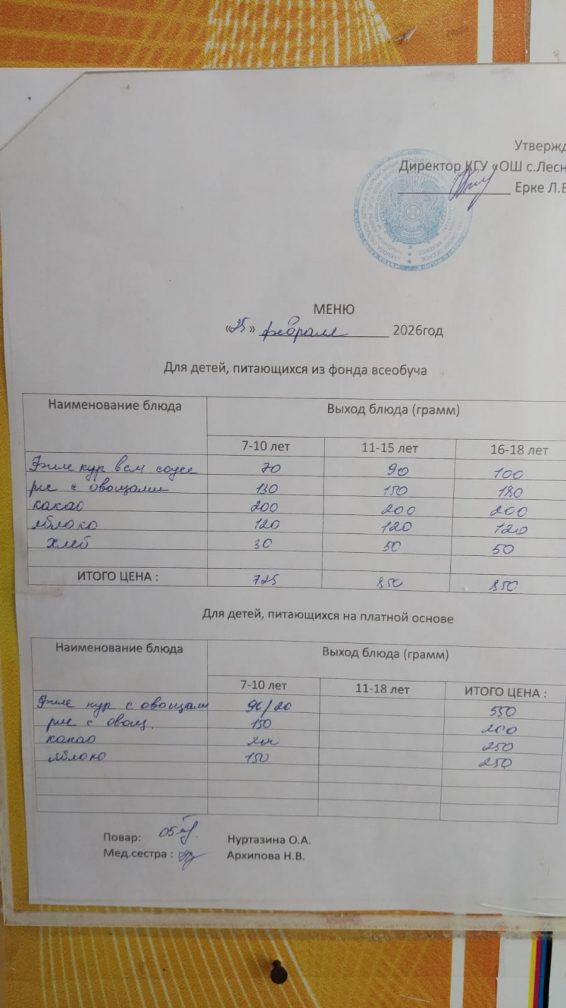 Утвержд
Директор КГУ «ОШ с.Лесн
Ерке Л.В
МЕНЮ
«25» февраля 2026год
Для детей, питающихся из фонда всеобуча
Наименование блюда Выход блюда (грамм)
7-10 лет 11-15 лет 16-18 лет
Филе кур в см соусе 70 90 100
рис с овощами 130 150 180
какао 200 200 200
яблоко 120 120 120
хлеб 30 50 50
ИТОГО ЦЕНА : 725 850 850
Для детей, питающихся на платной основе
Наименование блюда Выход блюда (грамм)
7-10 лет 11-18 лет ИТОГО ЦЕНА :
Филе кур с овощам 90/20 550
рис с овощ. 150 200
какао 200 250
яблоко 150 250
Повар: Нуртазина О.А.
Мед.сестра : Архипова Н.В.